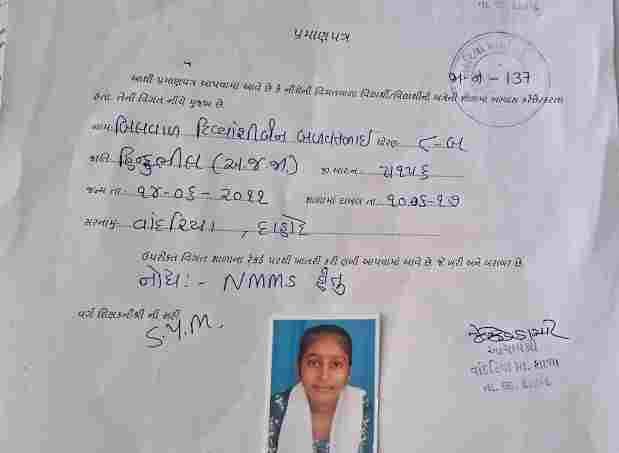 પ્રમાણપત્ર
અ.નં - 137
આથી પ્રમાણપત્ર આપવામાં આવે છે કે નીચેની વિગતવાળા વિદ્યાર્થી/વિદ્યાર્થીની અત્રેની શાળામાં અભ્યાસ કરેછે/કરતા
હતા. તેની વિગત નીચે મુજબ છે.
નામ બિલવાળ દિવ્યાંશીબેન બળવંતભાઇ ધોરણ ૮-બ
જાતિ હિન્દુ ભીલ (અ.જ.જા) જી.આર.નં.
જન્મ તા. ૧૪-૦૬-૨૦૧૧ શાળામાં દાખલ તા.
સરનામું વાંદરિયા, દાહોદ
ઉપરોક્ત વિગત શાળાના રેકર્ડ પરથી ખાતરી કરી લખી આપવામાં આવે છે. જે ખરી અને બરાબર છે.
નોંધ:- NMMS હેતુ
વર્ગ શિક્ષકની/શ્રી ની સહી
S.Y.M.
આચાર્યશ્રી
વાંદરિયા પ્રા. શાળા